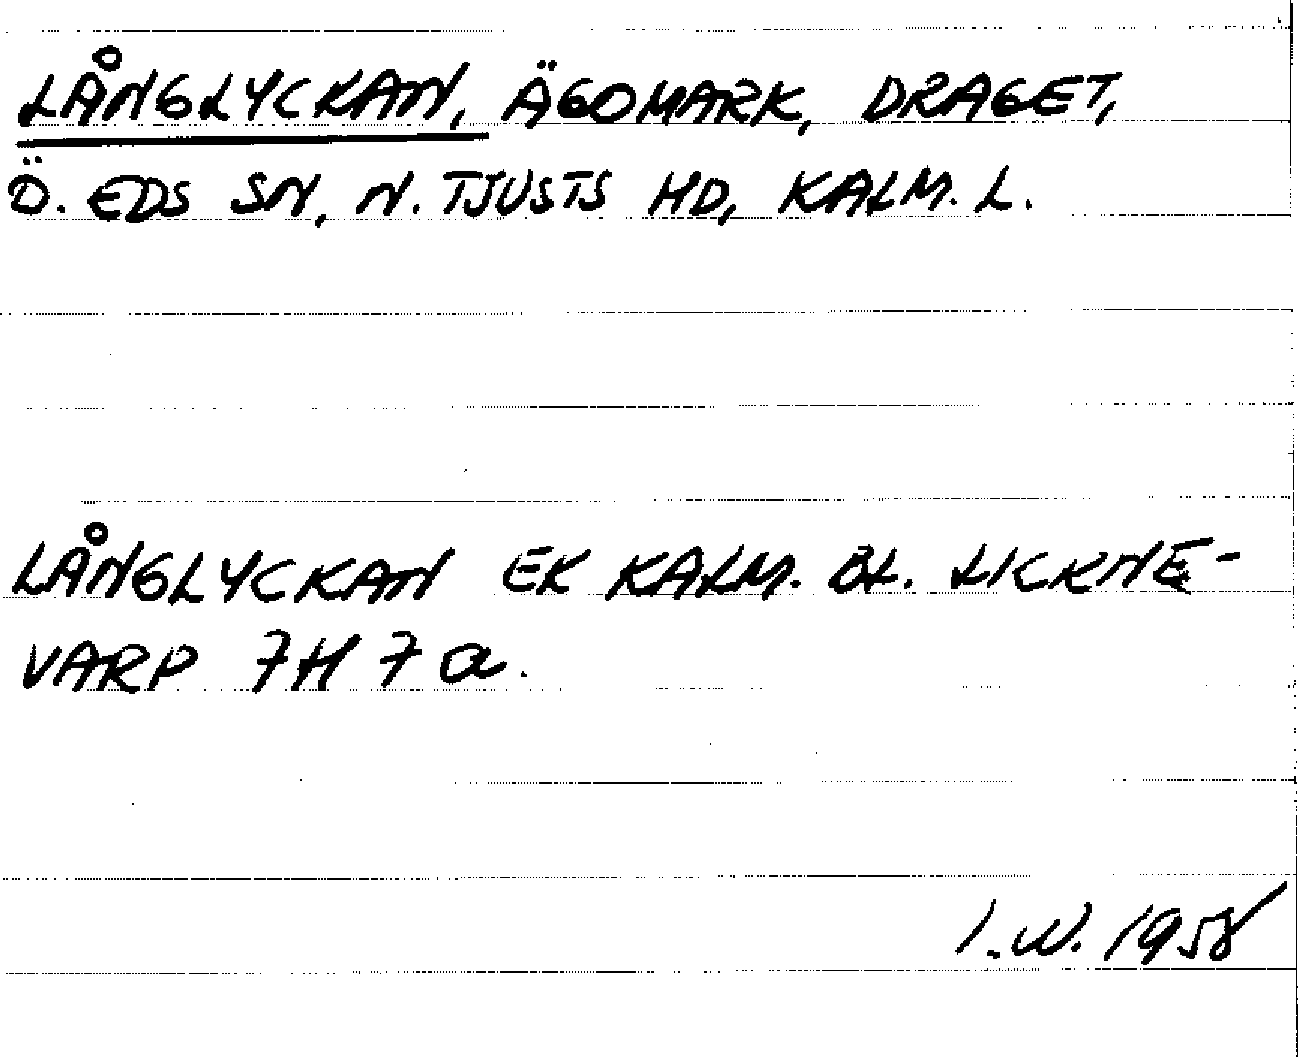 LÅNGLYCKAN, ÄGOMARK, DRAGET,
Ö. EDS SN, N. TJUSTS HD, KALM. L.
LÅNGLYCKAN EK KALM. BL. LICKNE-
VARP 7H 7 a.
I.W. 1958